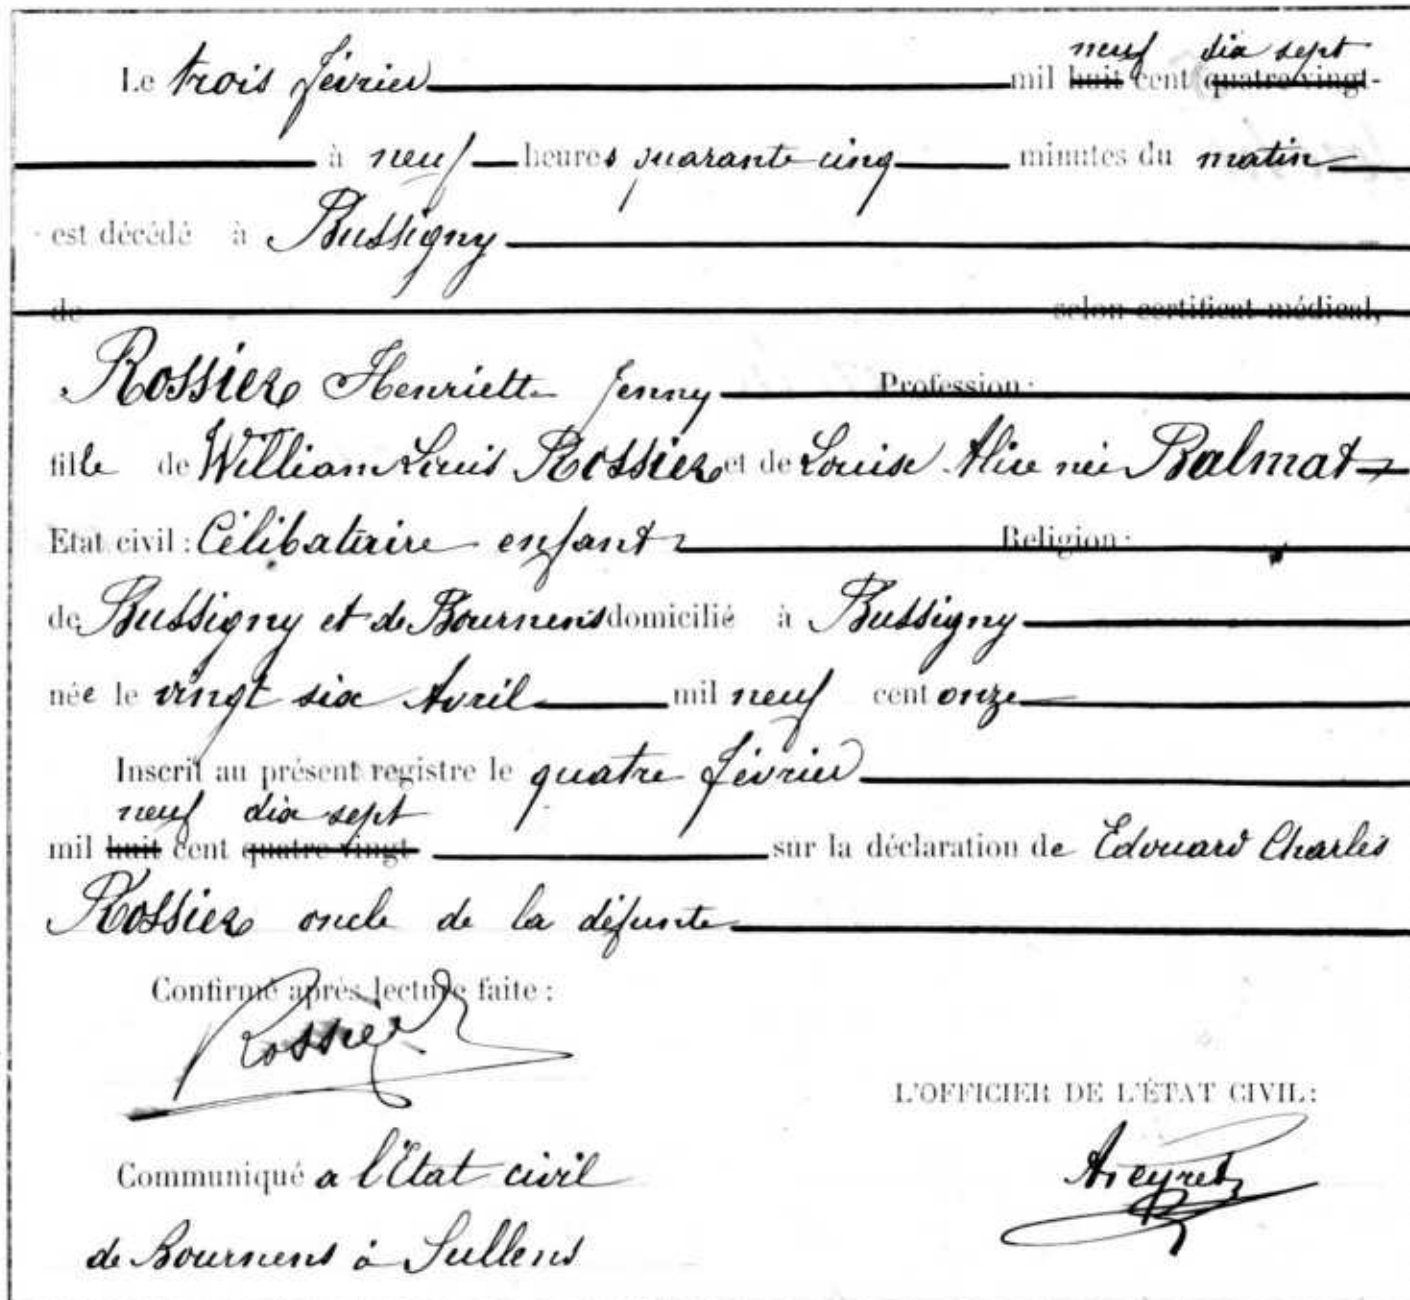 neuf dix sept
Le trois février mil huit cent quatre vingt-
à neuf heures quarante cinq minutes du matin
est décédé à Bussigny
de selon certificat médical,
Rossier Henriette Jenny Profession:
fille de William Louis Rossier et de Louise Alice née Balmat
Etat civil: Célibataire enfant Religion:
de Bussigny et de Bournens domicilié à Bussigny
née le vingt six Avril mil neuf cent onze
Inscrit au présent registre le quatre février
neuf dix sept
mil huit cent quatre vingt sur la déclaration de Edouard Charles
Rossier oncle de la défunte
Confirmé après lecture faite:
Rossier
L'OFFICIER DE L'ÉTAT CIVIL:
Communiqué a l'Etat civil
de Bournens à Sullens